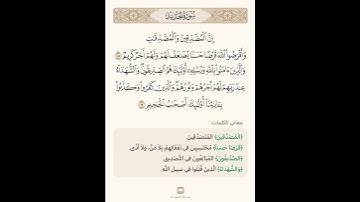 سُورَةُ الحَدِيدِ
إِنَّ ٱلْمُصَّدِّقِينَ وَٱلْمُصَّدِّقَٰتِ
وَأَقْرَضُوا۟ ٱللَّهَ قَرْضًا حَسَنًا يُضَٰعَفُ لَهُمْ وَلَهُمْ أَجْرٌ كَرِيمٌ ١٨
وَٱلَّذِينَ ءَامَنُوا۟ بِٱللَّهِ وَرُسُلِهِۦٓ أُو۟لَٰٓئِكَ هُمُ ٱلصِّدِّيقُونَ وَٱلشُّهَدَآءُ
عِندَ رَبِّهِمْ لَهُمْ أَجْرُهُمْ وَنُورُهُمْ وَٱلَّذِينَ كَفَرُوا۟ وَكَذَّبُوا۟
بِـَٔايَٰتِنَآ أُو۟لَٰٓئِكَ أَصْحَٰبُ ٱلْجَحِيمِ ١٩
معاني الكلمات
﴿الْمُصَّدِّقِينَ﴾ الْمُتَصَدِّقِينَ.
﴿قَرْضًا حَسَنًا﴾ مُحْتَسِبِينَ فِي نَفَقَاتِهِمْ بِلَا مَنٍّ، وَلَا أَذًى.
﴿الصِّدِّيقُونَ﴾ الْمُبَالِغُونَ فِي التَّصْدِيقِ.
﴿وَالشُّهَدَاءُ﴾ الَّذِينَ قُتِلُوا فِي سَبِيلِ اللَّهِ.